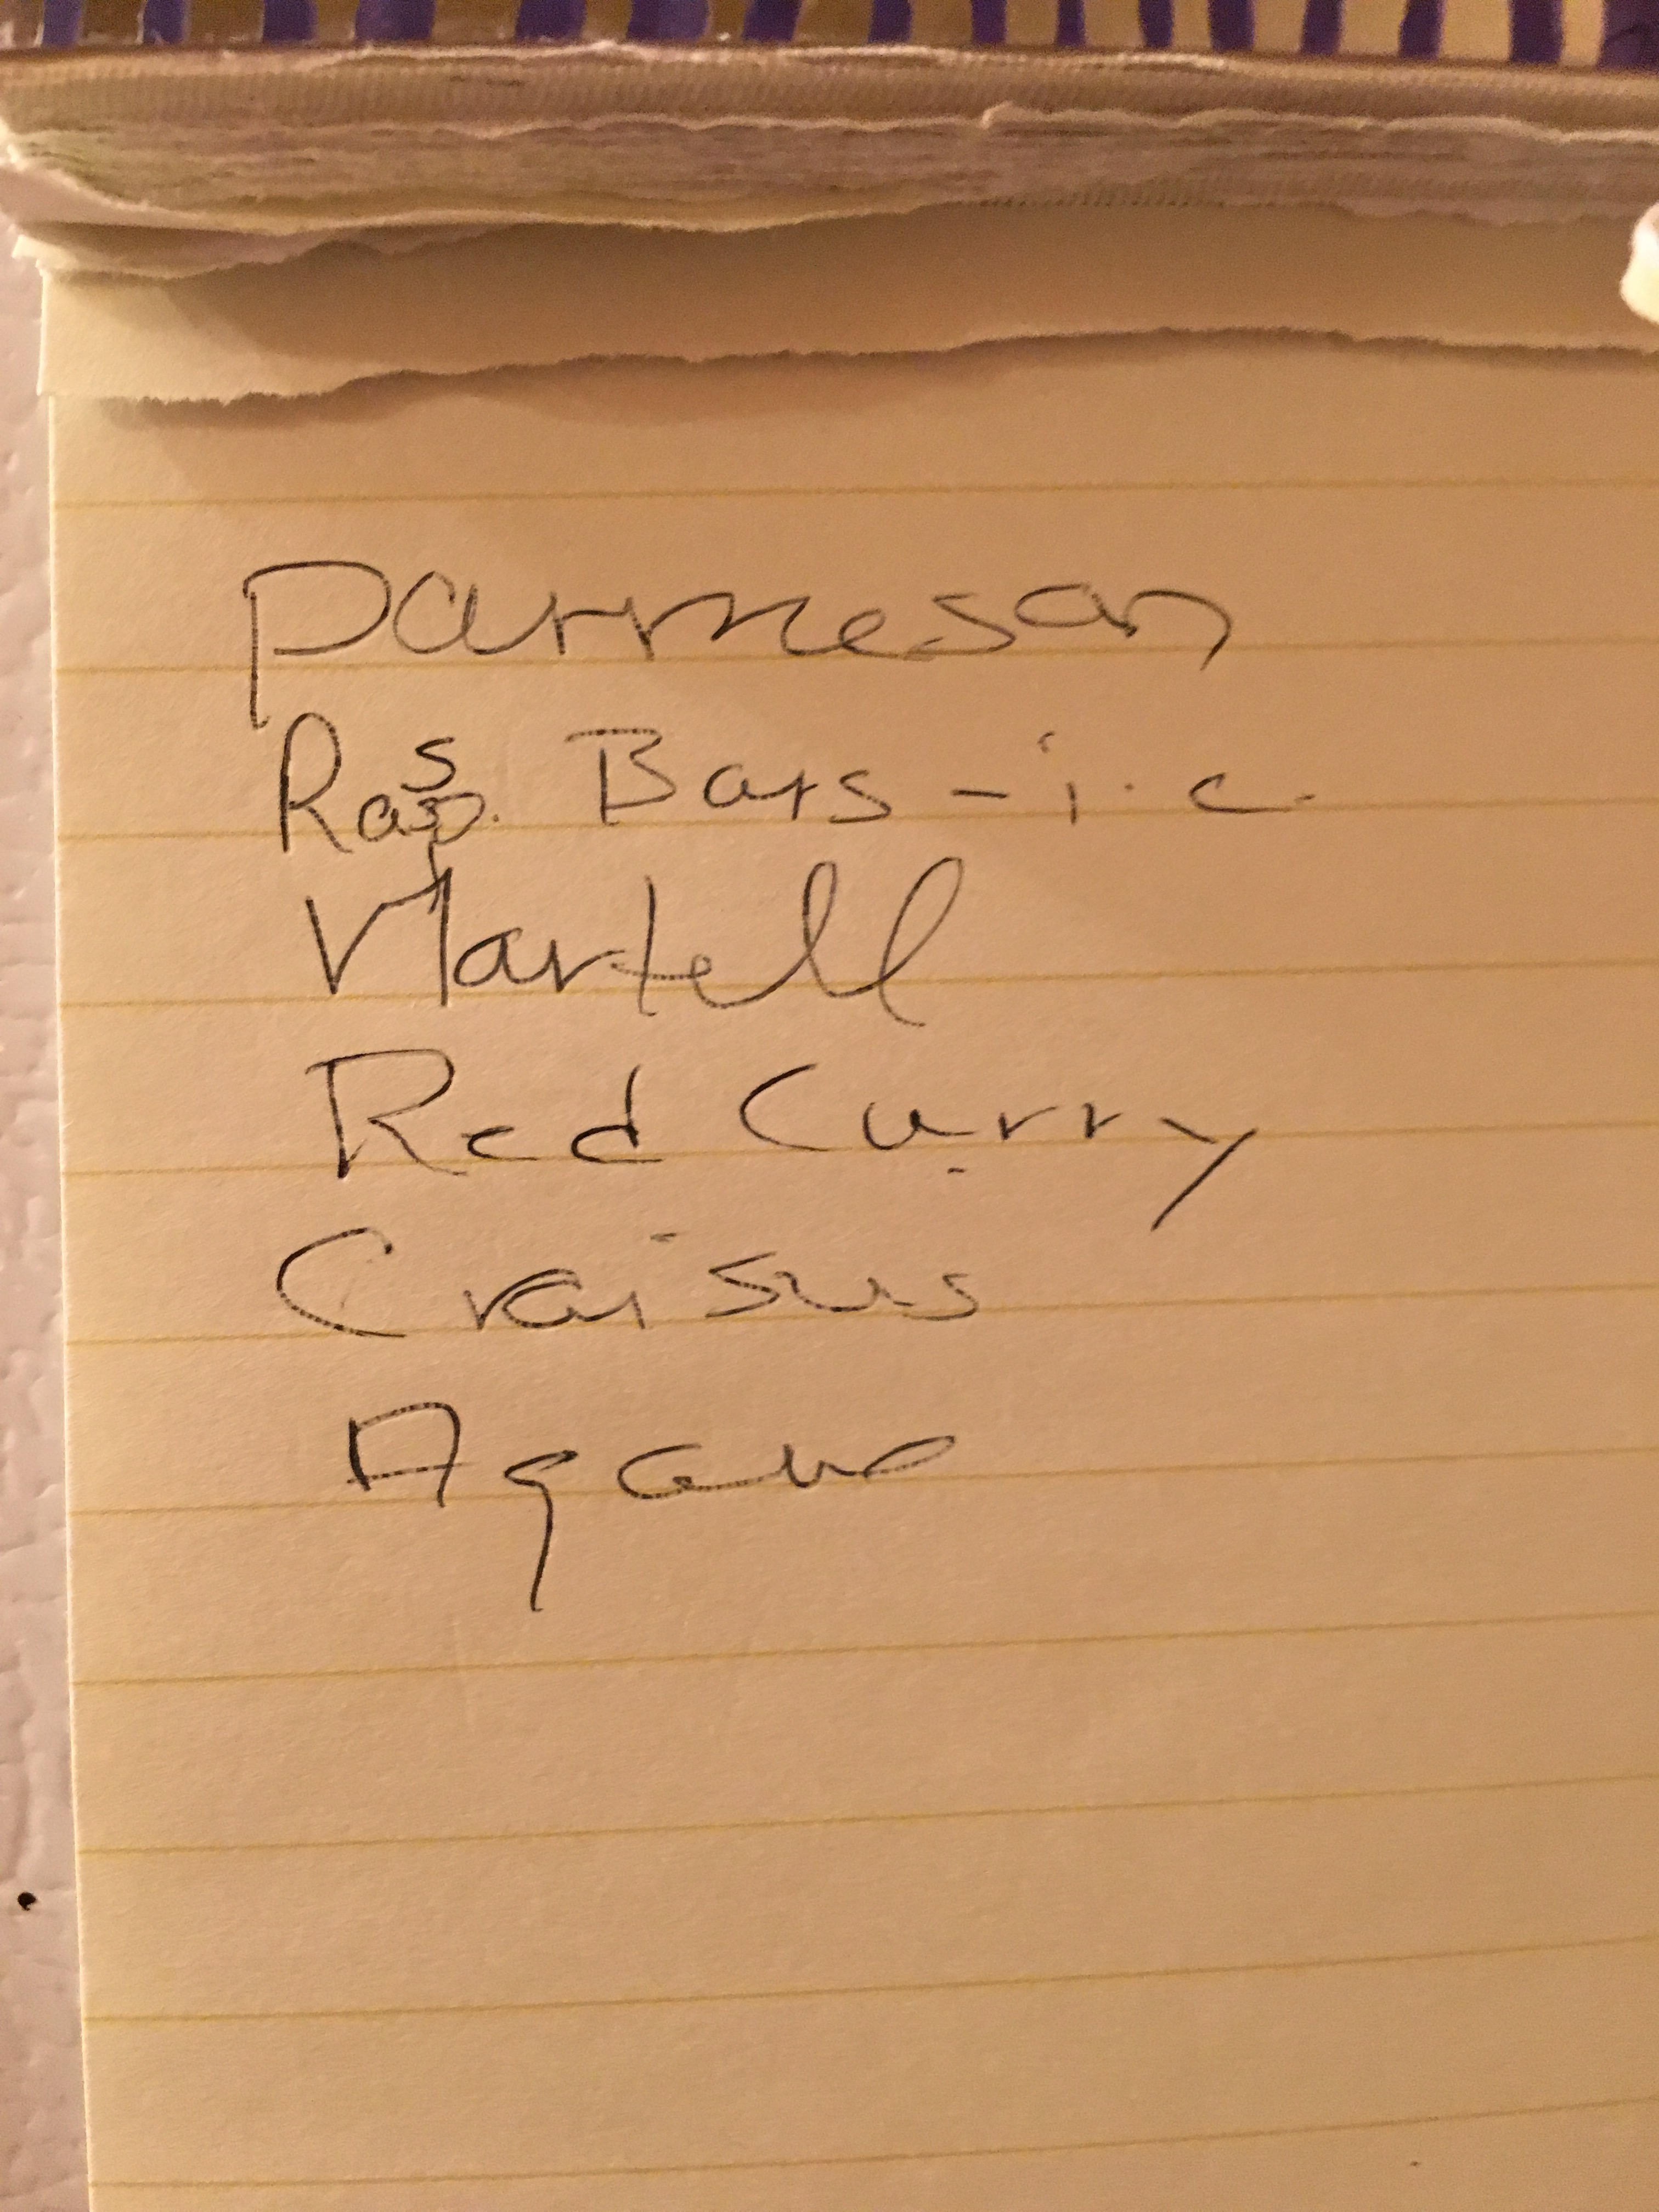 Parmesan
Rasp. Bars - i.c.
Martell
Red Curry
Craisus
Agave